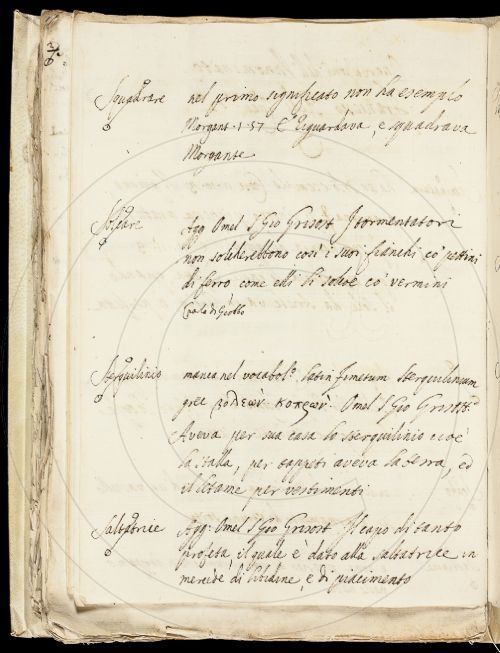 Squadrare nel primo significato non ha esempio
Morgant. 1. 57 E' riguardava, e squadrava
Morgante
Solcare Agg. Omel S Gio Grisost I tormentatori
non solcherebbono così i suoi fianchi co' pettini
di ferro come elli li solcò co' vermini
Parla di Giobbo
Sterquilinio manca nel vocabol.º latin fimetum sterquilinium
grec βολεὼν κοπρών. Omel S Gio Grisost.
Aveva per sua casa lo sterquilinio cioè
la stalla, per tappeti aveva la terra, ed
il litame per vestimenti
Saltatrice Agg. Omel S Gio Grisost Il capo di tanto
profeta il quale è dato alla saltatrice in
mercede di libidine, e di piacimento